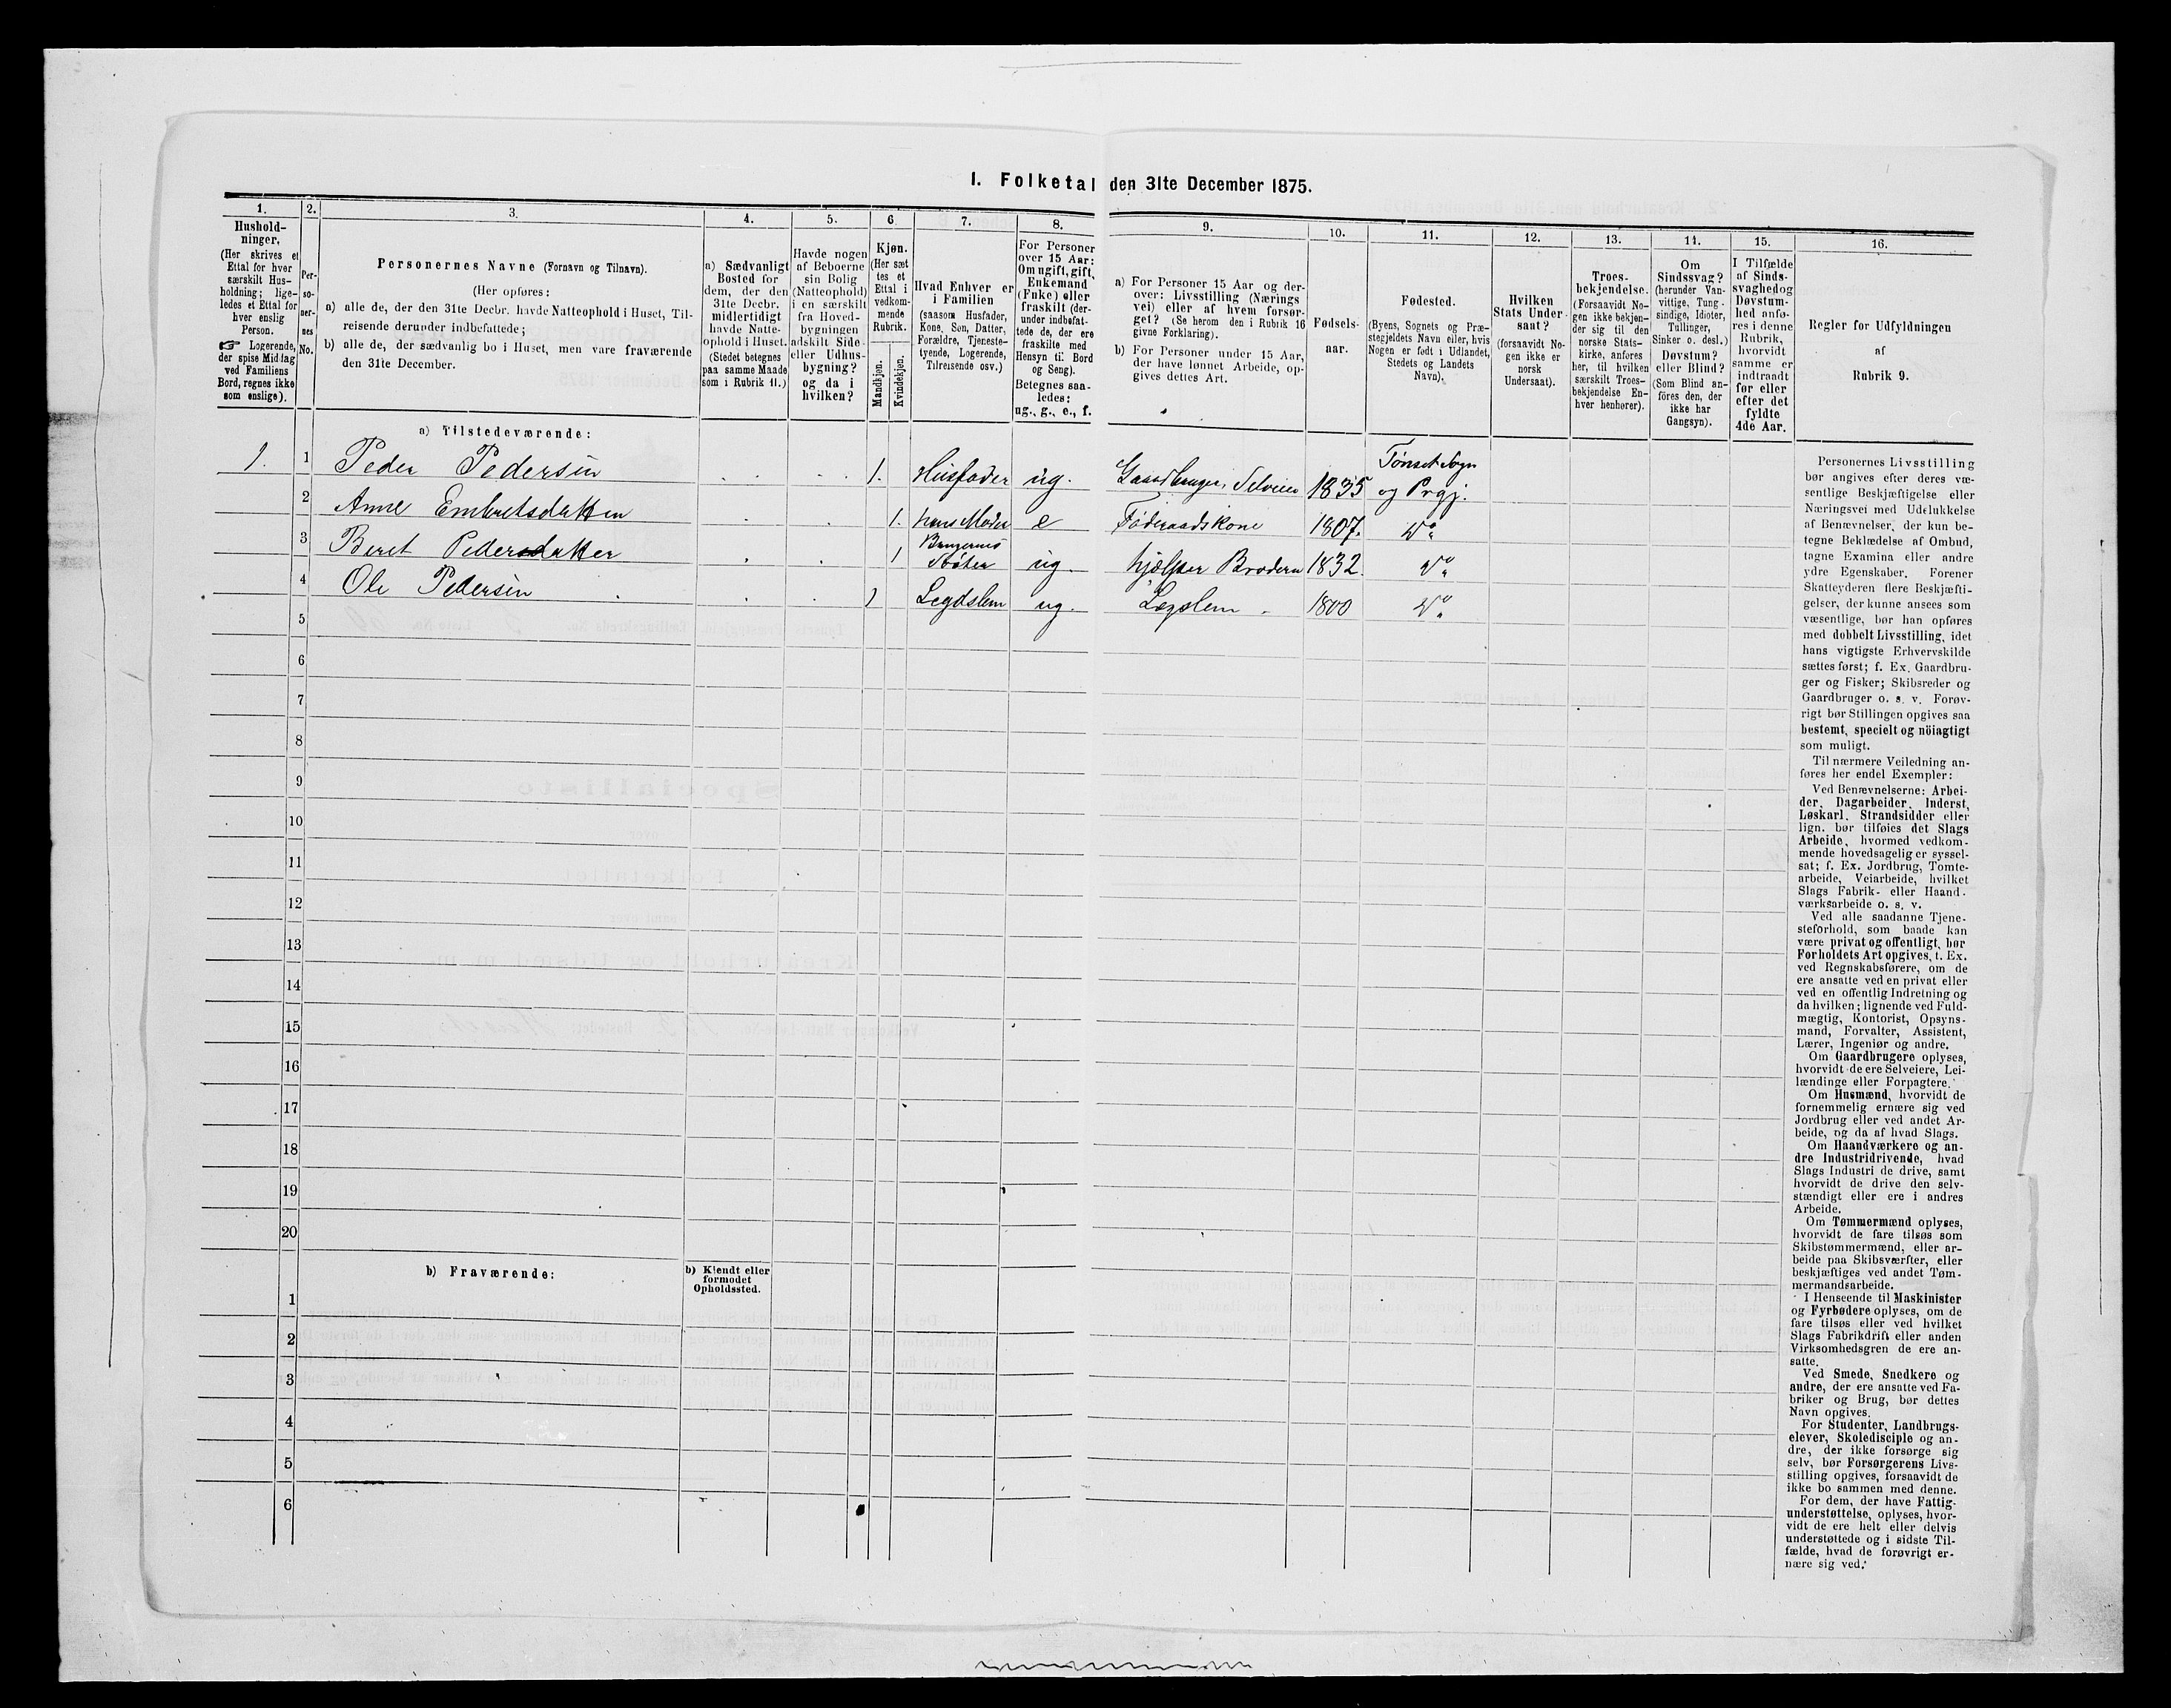 I. Folketal den 31te December 1875.
1.
Hushold-
ninger,
(Her skrives et
Ettal for hver
særskilt Hus-
holdning; lige-
ledes et Ettal for
hver enslig
Person.
☞ Logerende,
der spise Middag
ved Familiens
Bord, regnes ikke
som enslige).
2.
Per-
so-
ner-
nes
No.
3.
Personernes Navne (Fornavn og Tilnavn).
(Her opføres:
a) alle de, der den 31te Decbr. havde Natteophold i Huset, Til-
reisende derunder indbefattede;
b) alle de, der sædvanlig bo i Huset, men vare fraværende
den 31te December.
4.
a) Sædvanligt
Bosted for
dem, der den
31te Decbr.
midlertidigt
havde Natte-
ophold i Huset.
(Stedet betegnes
paa samme Maade
som i Rubrik 11.)
5.
Havde nogen
af Beboerne
sin Bolig
(Natteophold)
i en særskilt
fra Hoved-
bygningen
adskilt Side-
eller Udhus-
bygning?
og da i
hvilken?
6.
Kjøn.
(Her sæt-
tes et
Ettal i
vedkom-
mende
Rubrik.
Mandkjøn.
Kvindekjøn.
7.
Hvad Enhver er
i Familien
(saasom Husfader,
Kone, Søn, Datter,
Forældre, Tjeneste-
tyende, Logerende,
Tilreisende osv.)
8.
For Personer
over 15 Aar:
Om ugift, gift,
Enkemand
(Enke) eller
fraskilt (der-
under indbefat-
tede de, der ere
fraskilte med
Hensyn til Bord
og Seng).
Betegnes saa-
ledes:
ug., g., e., f.
9.
a) For Personer 15 Aar og der-
over: Livsstilling (Nærings-
vei) eller af hvem forsør-
get? (Se herom den i Rubrik 16
givne Forklaring).
b) For Personer under 15 Aar,
der have lønnet Arbeide, op-
gives dettes Art.
10.
Fødsels-
aar.
11.
Fødested.
(Byens, Sognets og Præ-
stegjeldets Navn eller, hvis
Nogen er født i Udlandet,
Stedets og Landets
Navn).
12.
Hvilken
Stats Under-
saat?
(forsaavidt No-
gen ikke er
norsk
Undersaat).
13.
Troes-
bekjendelse.
(Forsaavidt No-
gen ikke bekjen-
der sig til den
norske Stats-
kirke, anføres
her, til hvilken
særskilt Troes-
bekjendelse En-
hver henhører).
14.
Om
Sindssvag?
(herunder Van-
vittige, Tung-
sindige, Idioter,
Tullinger,
Sinker o. desl.)
Døvstum?
eller Blind?
(Som Blind an-
føres den, der
ikke har
Gangsyn).
15.
I Tilfælde
af Sinds-
svaghed og
Døvstum-
hed anfø-
res i denne
Rubrik,
hvorvidt
samme er
indtraadt
før eller
efter det
fyldte
4de Aar.
16.
Regler for Udfyldningen
af
Rubrik 9.
a) Tilstedeværende:
1. 1 Peder Pedersen 1. Husfader ug. Gaardbruger, Selveier 1835 Tönset Sogn og Prgj.
2 Anne Embretsdatter 1. hans Moder e Föderaadskone 1807. Do
3 Beret Pedersdatter 1 Brugerens Söster ug. hjælper Broderen 1832. Do
4 Ole Pedersen 1 Legdslem ug. Lægslem 1800 Do
5
6
7
8
9
10
11
12
13
14
15
16
17
18
19
20
b) Fraværende:
b) Kjendt eller
formodet
Opholdssted.
1
2
3
4
5
6
Personernes Livsstilling
bør angives efter deres væ-
sentlige Beskjæftigelse eller
Næringsvei med Udelukkelse
af Benævnelser, der kun be-
tegne Beklædelse af Ombud,
tagne Examina eller andre
ydre Egenskaber. Forener
Skatteyderen flere Beskjæfti-
gelser, der kunne ansees som
væsentlige, bør han opføres
med dobbelt Livsstilling, idet
hans vigtigste Erhvervskilde
sættes først; f. Ex. Gaardbru-
ger og Fisker; Skibsreder og
Gaardbruger o. s. v. Forøv-
rigt bør Stillingen opgives saa
bestemt, specielt og nöiagtigt
som muligt.
Til nærmere Veiledning an-
føres her endel Exempler:
Ved Benævnelserne: Arbei-
der, Dagarbeider, Inderst,
Løskarl, Strandsidder eller
lign. bør tilføies det Slags
Arbeide, hvormed vedkom-
mende hovedsagelig er syssel-
sat; f. Ex. Jordbrug, Tomte-
arbeide, Veiarbeide, hvilket
Slags Fabrik- eller Haand-
værksarbeide o. s. v.
Ved alle saadanne Tjene-
steforhold, som baade kan
være privat og offentligt, bør
Forholdets Art opgives, f. Ex.
ved Regnskabsførere, om de
ere ansatte ved en privat eller
ved en offentlig Indretning og
da hvilken; lignende ved Fuld-
mægtig, Kontorist, Opsyns-
mand, Forvalter, Assistent,
Lærer, Ingeniør og andre.
Om Gaardbrugere oplyses,
hvorvidt de ere Selveiere, Lei-
lændinge eller Forpagtere.
Om Husmænd, hvorvidt de
fornemmelig ernære sig ved
Jordbrug eller ved andet Ar-
beide, og da af hvad Slags.
Om Haandværkere og an-
dre Industridrivende, hvad
Slags Industri de drive, samt
hvorvidt de drive den selv-
stændigt eller ere i andres
Arbeide.
Om Tømmermænd oplyses,
hvorvidt de fare tilsøs som
Skibstømmermænd, eller ar-
beide paa Skibsværfter, eller
beskjæftiges ved andet Tøm-
mermandsarbeide.
I Henseende til Maskinister
og Fyrbødere oplyses, om de
fare tilsøs eller ved hvilket
Slags Fabrikdrift eller anden
Virksomhedsgren de ere an-
satte.
Ved Smede, Snedkere og
andre, der ere ansatte ved Fa-
briker og Brug, bør dettes
Navn opgives.
For Studenter, Landbrugs-
elever, Skoledisciple og an-
dre, der ikke forsørge sig
selv, bør Forsørgerens Livs-
stilling opgives, forsaavidt de
ikke bo sammen med denne.
For dem, der have Fattig-
understøttelse, oplyses, hvor-
vidt de ere helt eller delvis
understøttede og i sidste Til-
fælde, hvad de forøvrigt er-
nære sig ved.